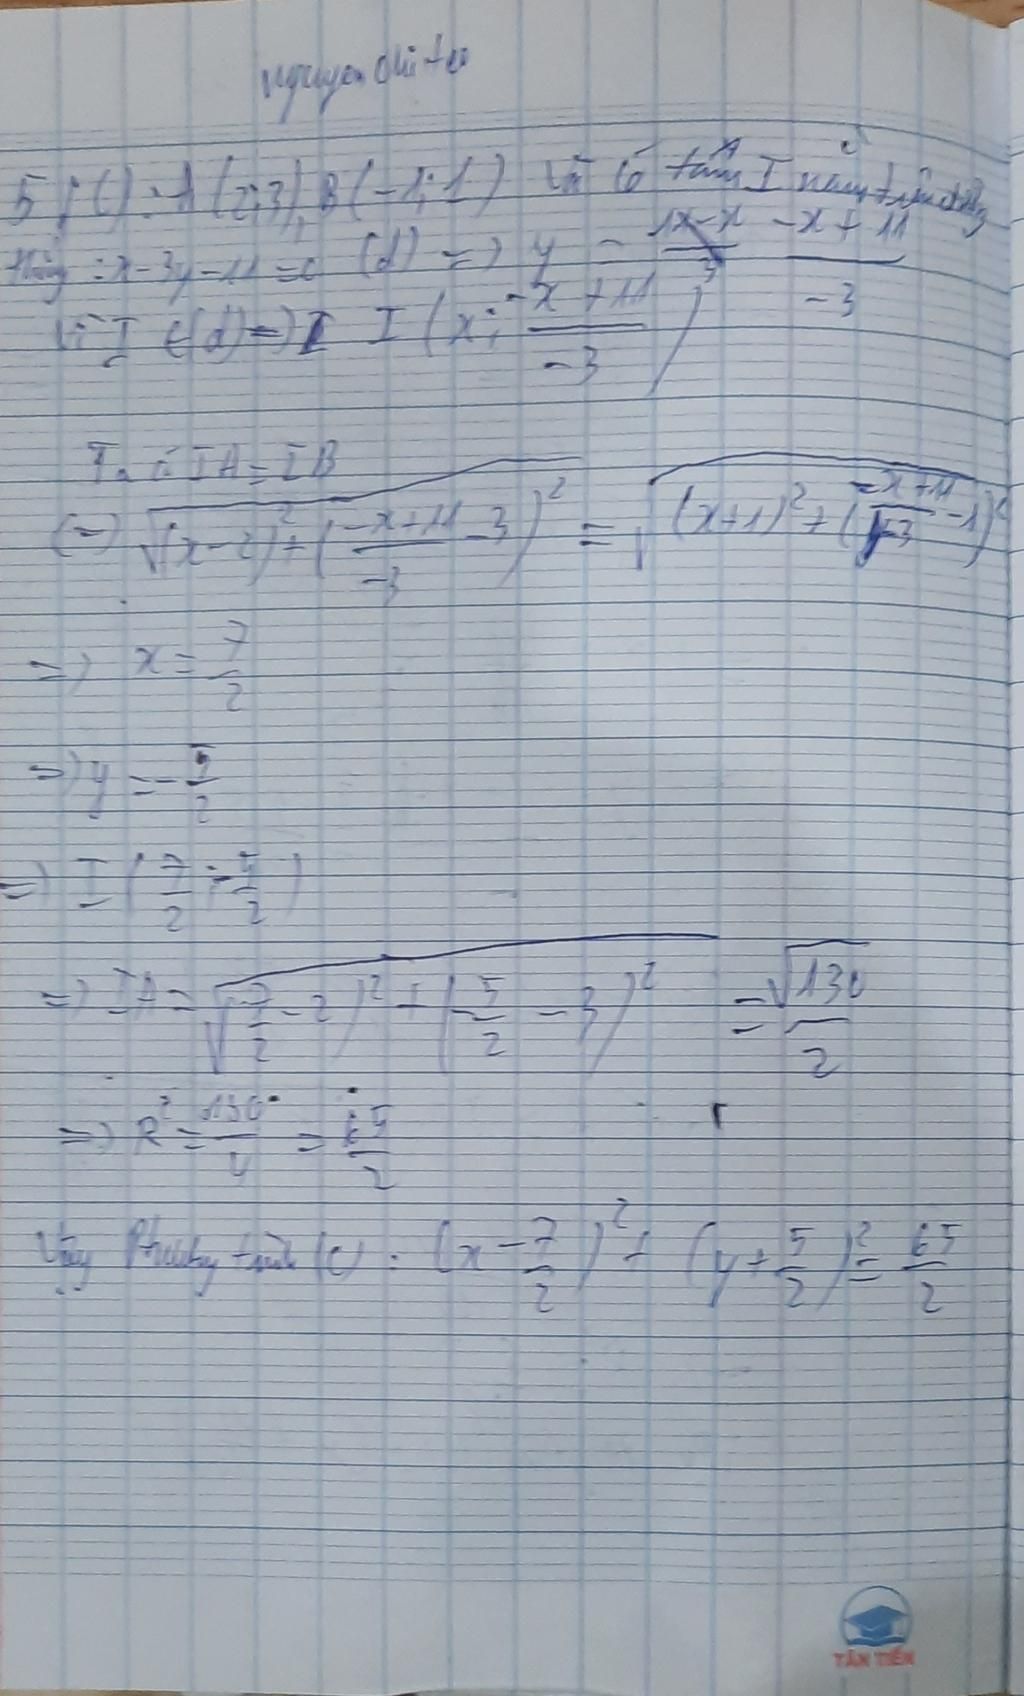 Nguyen Chi
5 / () : A (2;3), B (-1;1) Và có tâm I nằm trên đường
thẳng : x-3y-11=0 (d) => y = -x+11 / -3
Vì I ∈(d)=) I (x; -x+11 / -3)
Ta có IA=IB
(=) √((x-2)² + (-x+11 / -3 -3)²) = √((x+1)² + (-x+11 / -3 -1)²)
=) x = 7/2
=) y = -5/2
=) I (7/2 ; -5/2)
=) IA = √((7/2 -2)² + (-5/2 -3)²) = √130 / 2
=) R² = 130/4 = 65/2
Vậy Phương trình (C) : (x - 7/2)² + (y + 5/2)² = 65/2
TÂN TIẾN